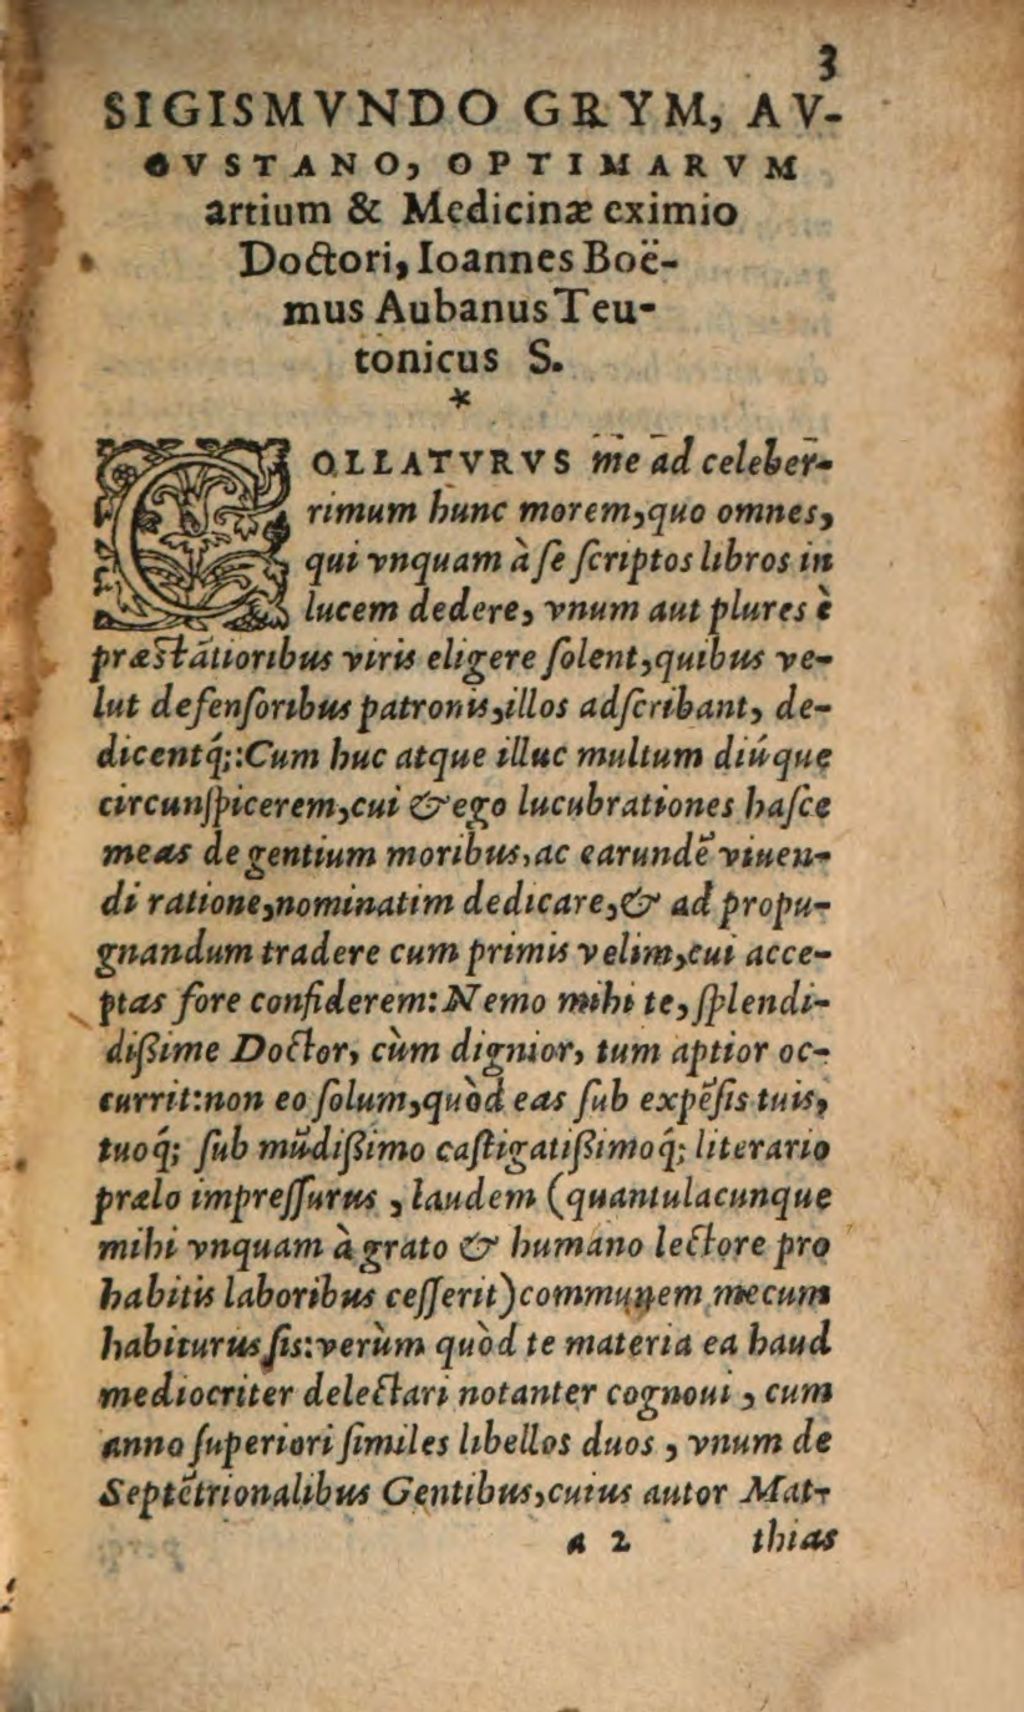 3
SIGISMVNDO GRYM, AV-
GVSTANO, OPTIMARVM
artium & Medicinæ eximio
Doctori, Ioannes Boë-
mus Aubanus Teu-
tonicus S.
*
COLLATVRVS me ad celeber-
rimum hunc morem, quo omnes,
qui vnquam à ſe ſcriptos libros in
lucem dedere, vnum aut plures è
præstātioribus viris eligere ſolent, quibus ve-
lut defenſoribus patronis, illos adſcribant, de-
dicentq́;: Cum huc atque illuc multum diúque
circunſpicerem, cui & ego lucubrationes haſce
meas de gentium moribus, ac earundē viuen-
di ratione, nominatim dedicare, & ad propu-
gnandum tradere cum primis velim, cui acce-
ptas fore confiderem: Nemo mihi te, ſplendi-
dißime Doctor, cùm dignior, tum aptior oc-
currit: non eo ſolum, quòd eas ſub expēſis tuis,
tuoq́; ſub mūdißimo caſtigatißimoq́; literario
prælo impreſſurus, laudem (quantulacunque
mihi vnquam à grato & humano lectore pro
habitis laboribus ceſſerit) communem mecum
habiturus ſis: verùm quòd te materia ea haud
mediocriter delectari notanter cognoui, cum
anno ſuperiori ſimiles libellos duos, vnum de
Septētrionalibus Gentibus, cuius autor Mat-
a 2 thias